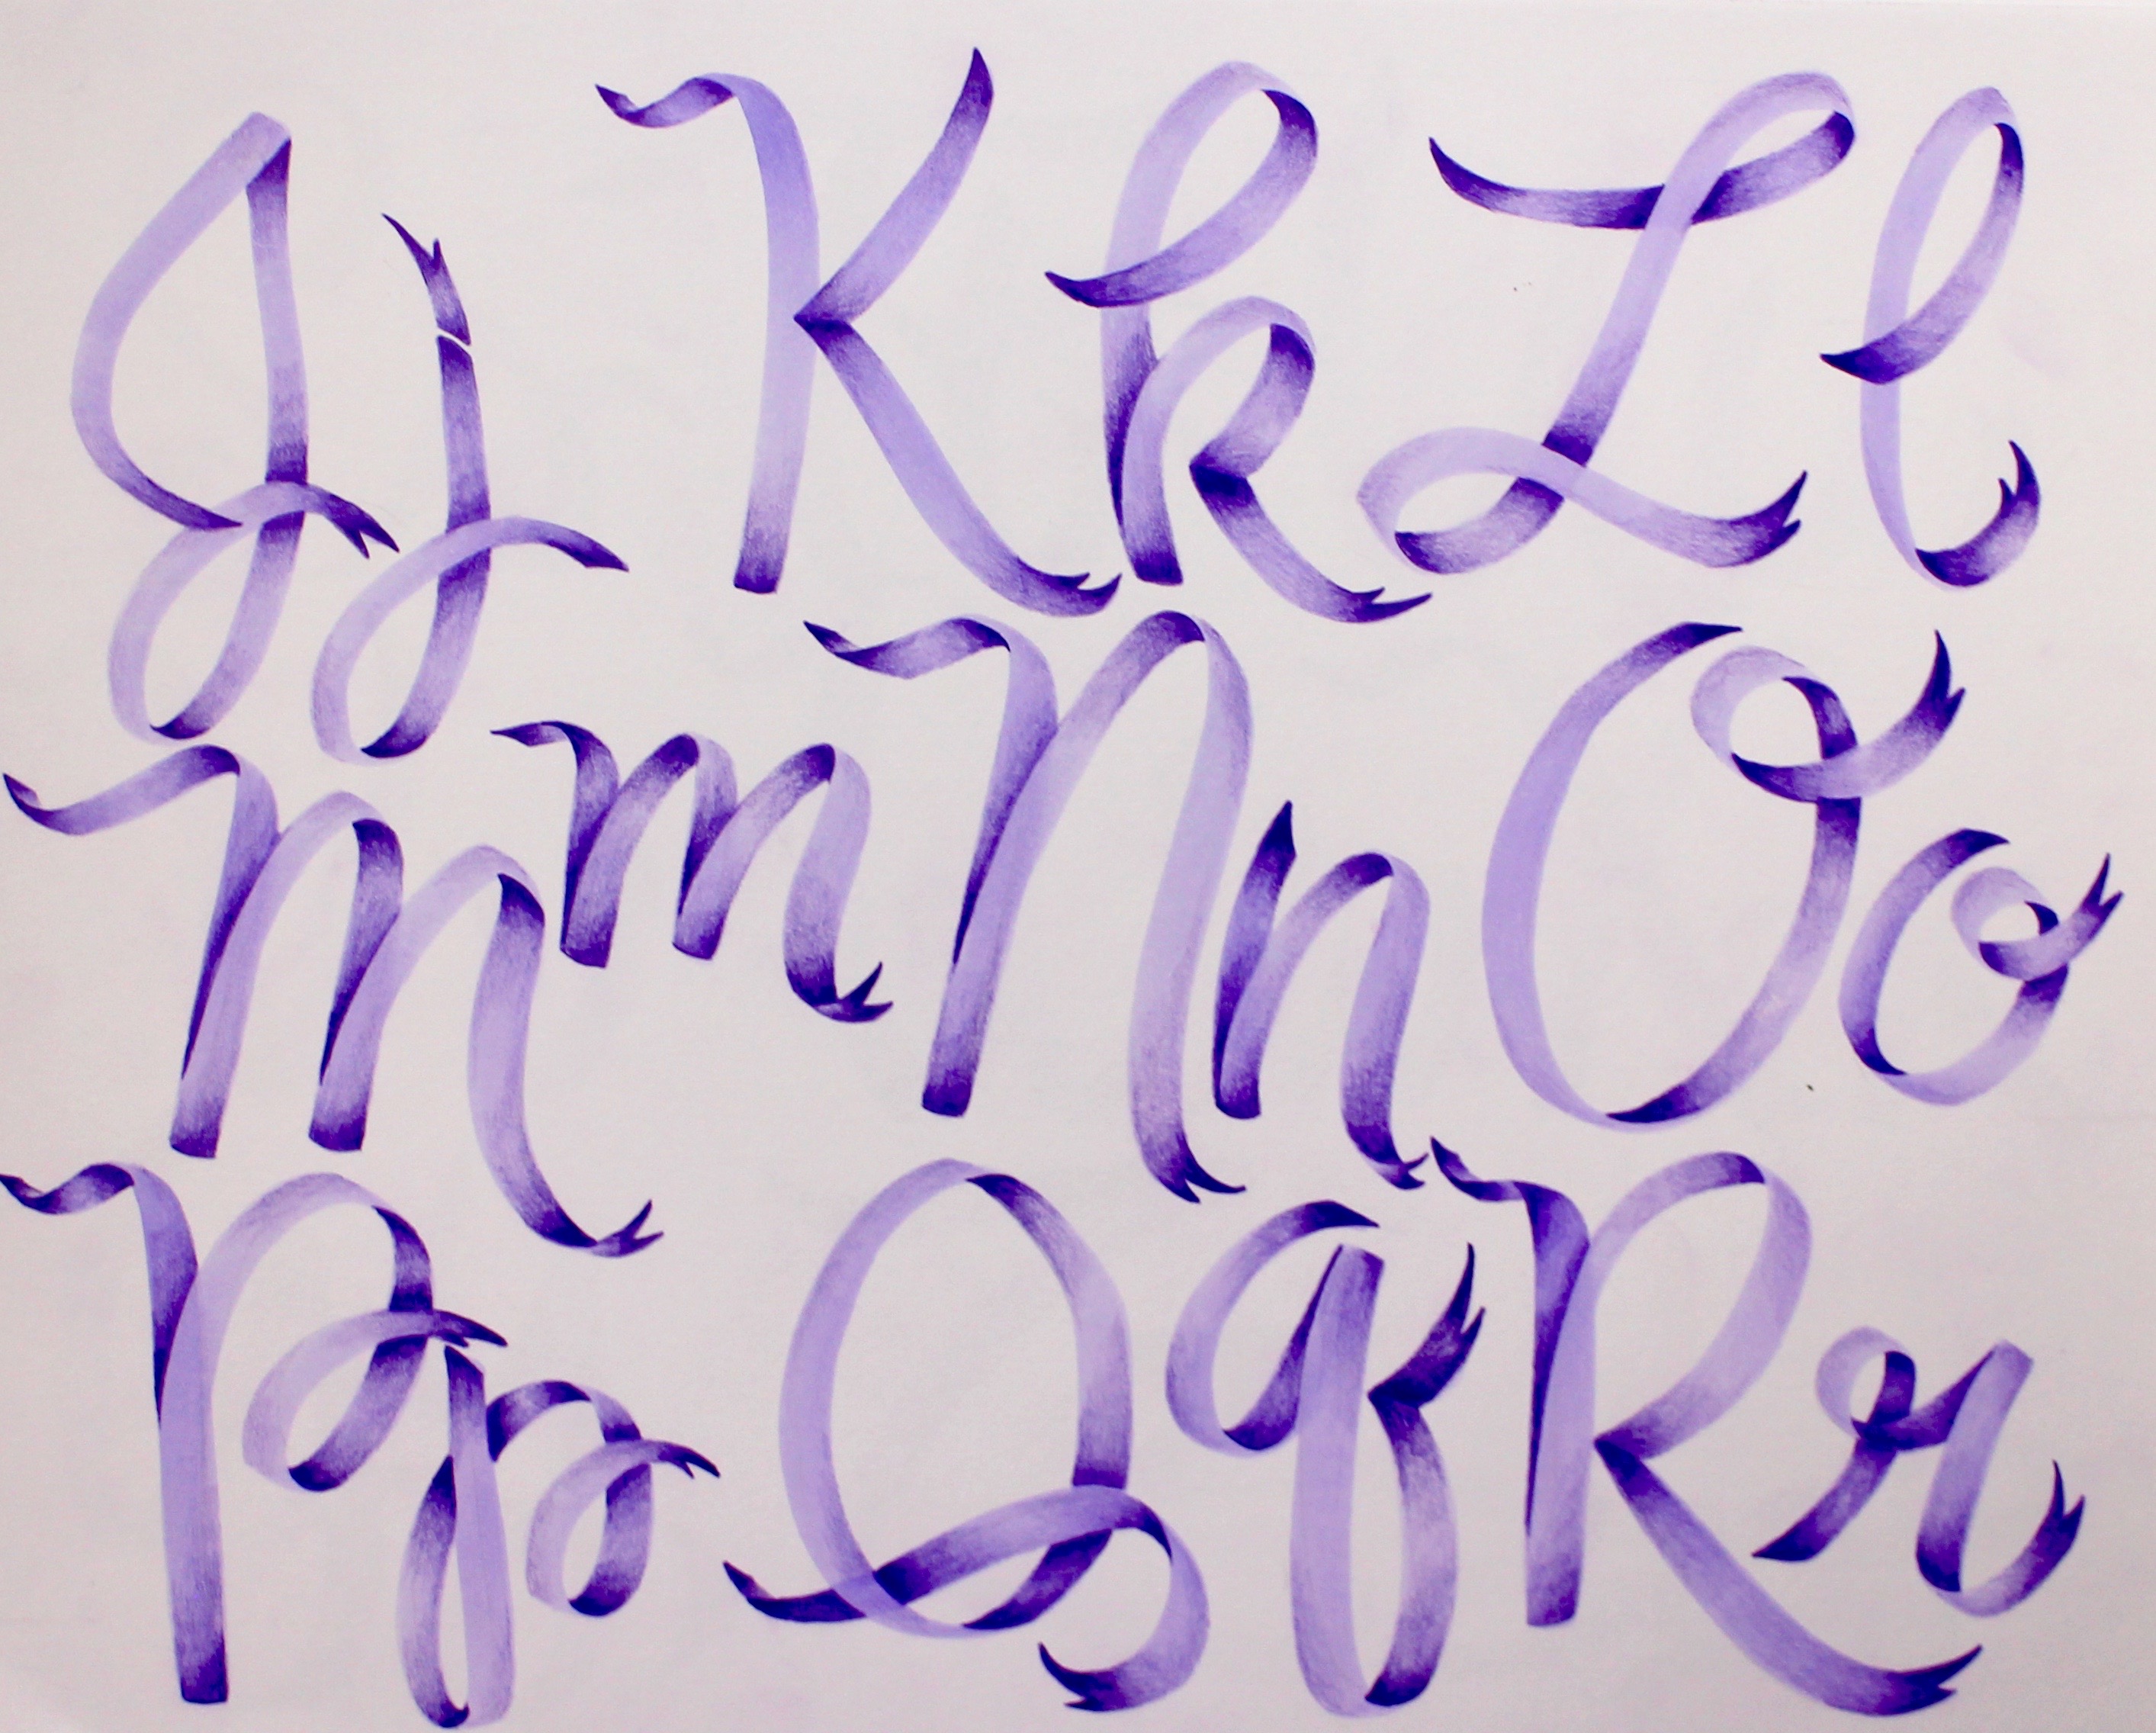 Jj Kk Ll
Mm Nn Oo
Pp Qq Rr